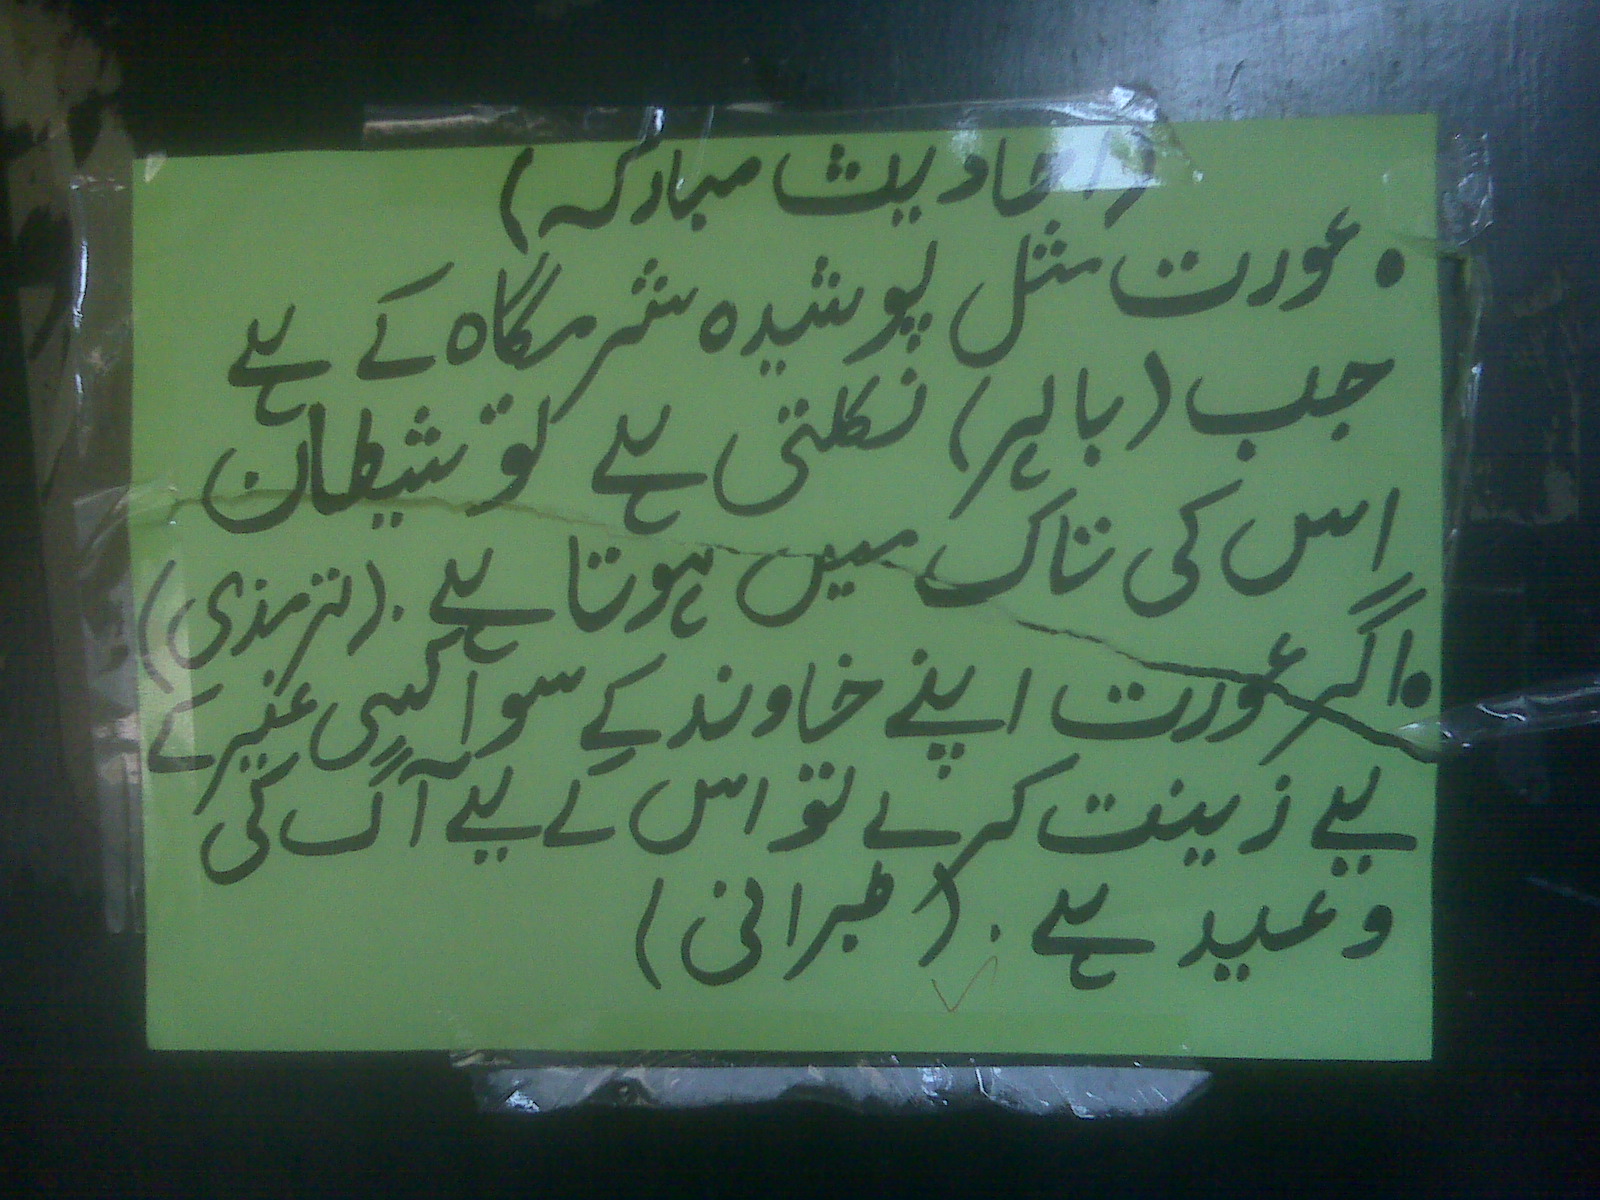 (احادیث مبارکہ)
• عورت مثل پوشیدہ شرمگاہ کے ہے
جب (باہر) نکلتی ہے تو شیطان
اِس کی تاک میں ہوتا ہے. (ترمذی)
• اگر عورت اپنے خاوند کے سوا کسی غیر کے
لیے زینت کرے تو اس کے لیے آگ کی
وعید ہے. (طبرانی)